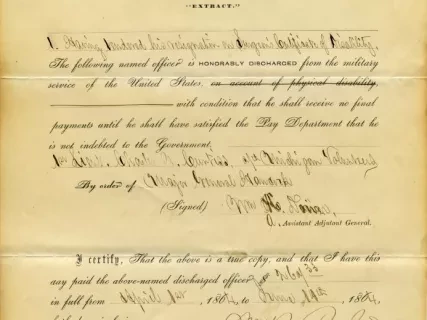 "EXTRACT."
1. Having tendered his resignation on Surgeon's Certificate of Disability,
The following named officer is HONORABLY DISCHARGED from the military
service of the United States, on account of physical disability,
with condition that he shall receive no final
payments until he shall have satisfied the Pay Department that he
is not indebted to the Government.
1st Lieut. Michigan Volunteers
By order of Major General
(Signed) Wm
Assistant Adjutant General.
I certify, That the above is a true copy, and that I have this
day paid the above-named discharged officer
in full from April 1st, 1864, to June 14th, 1864,